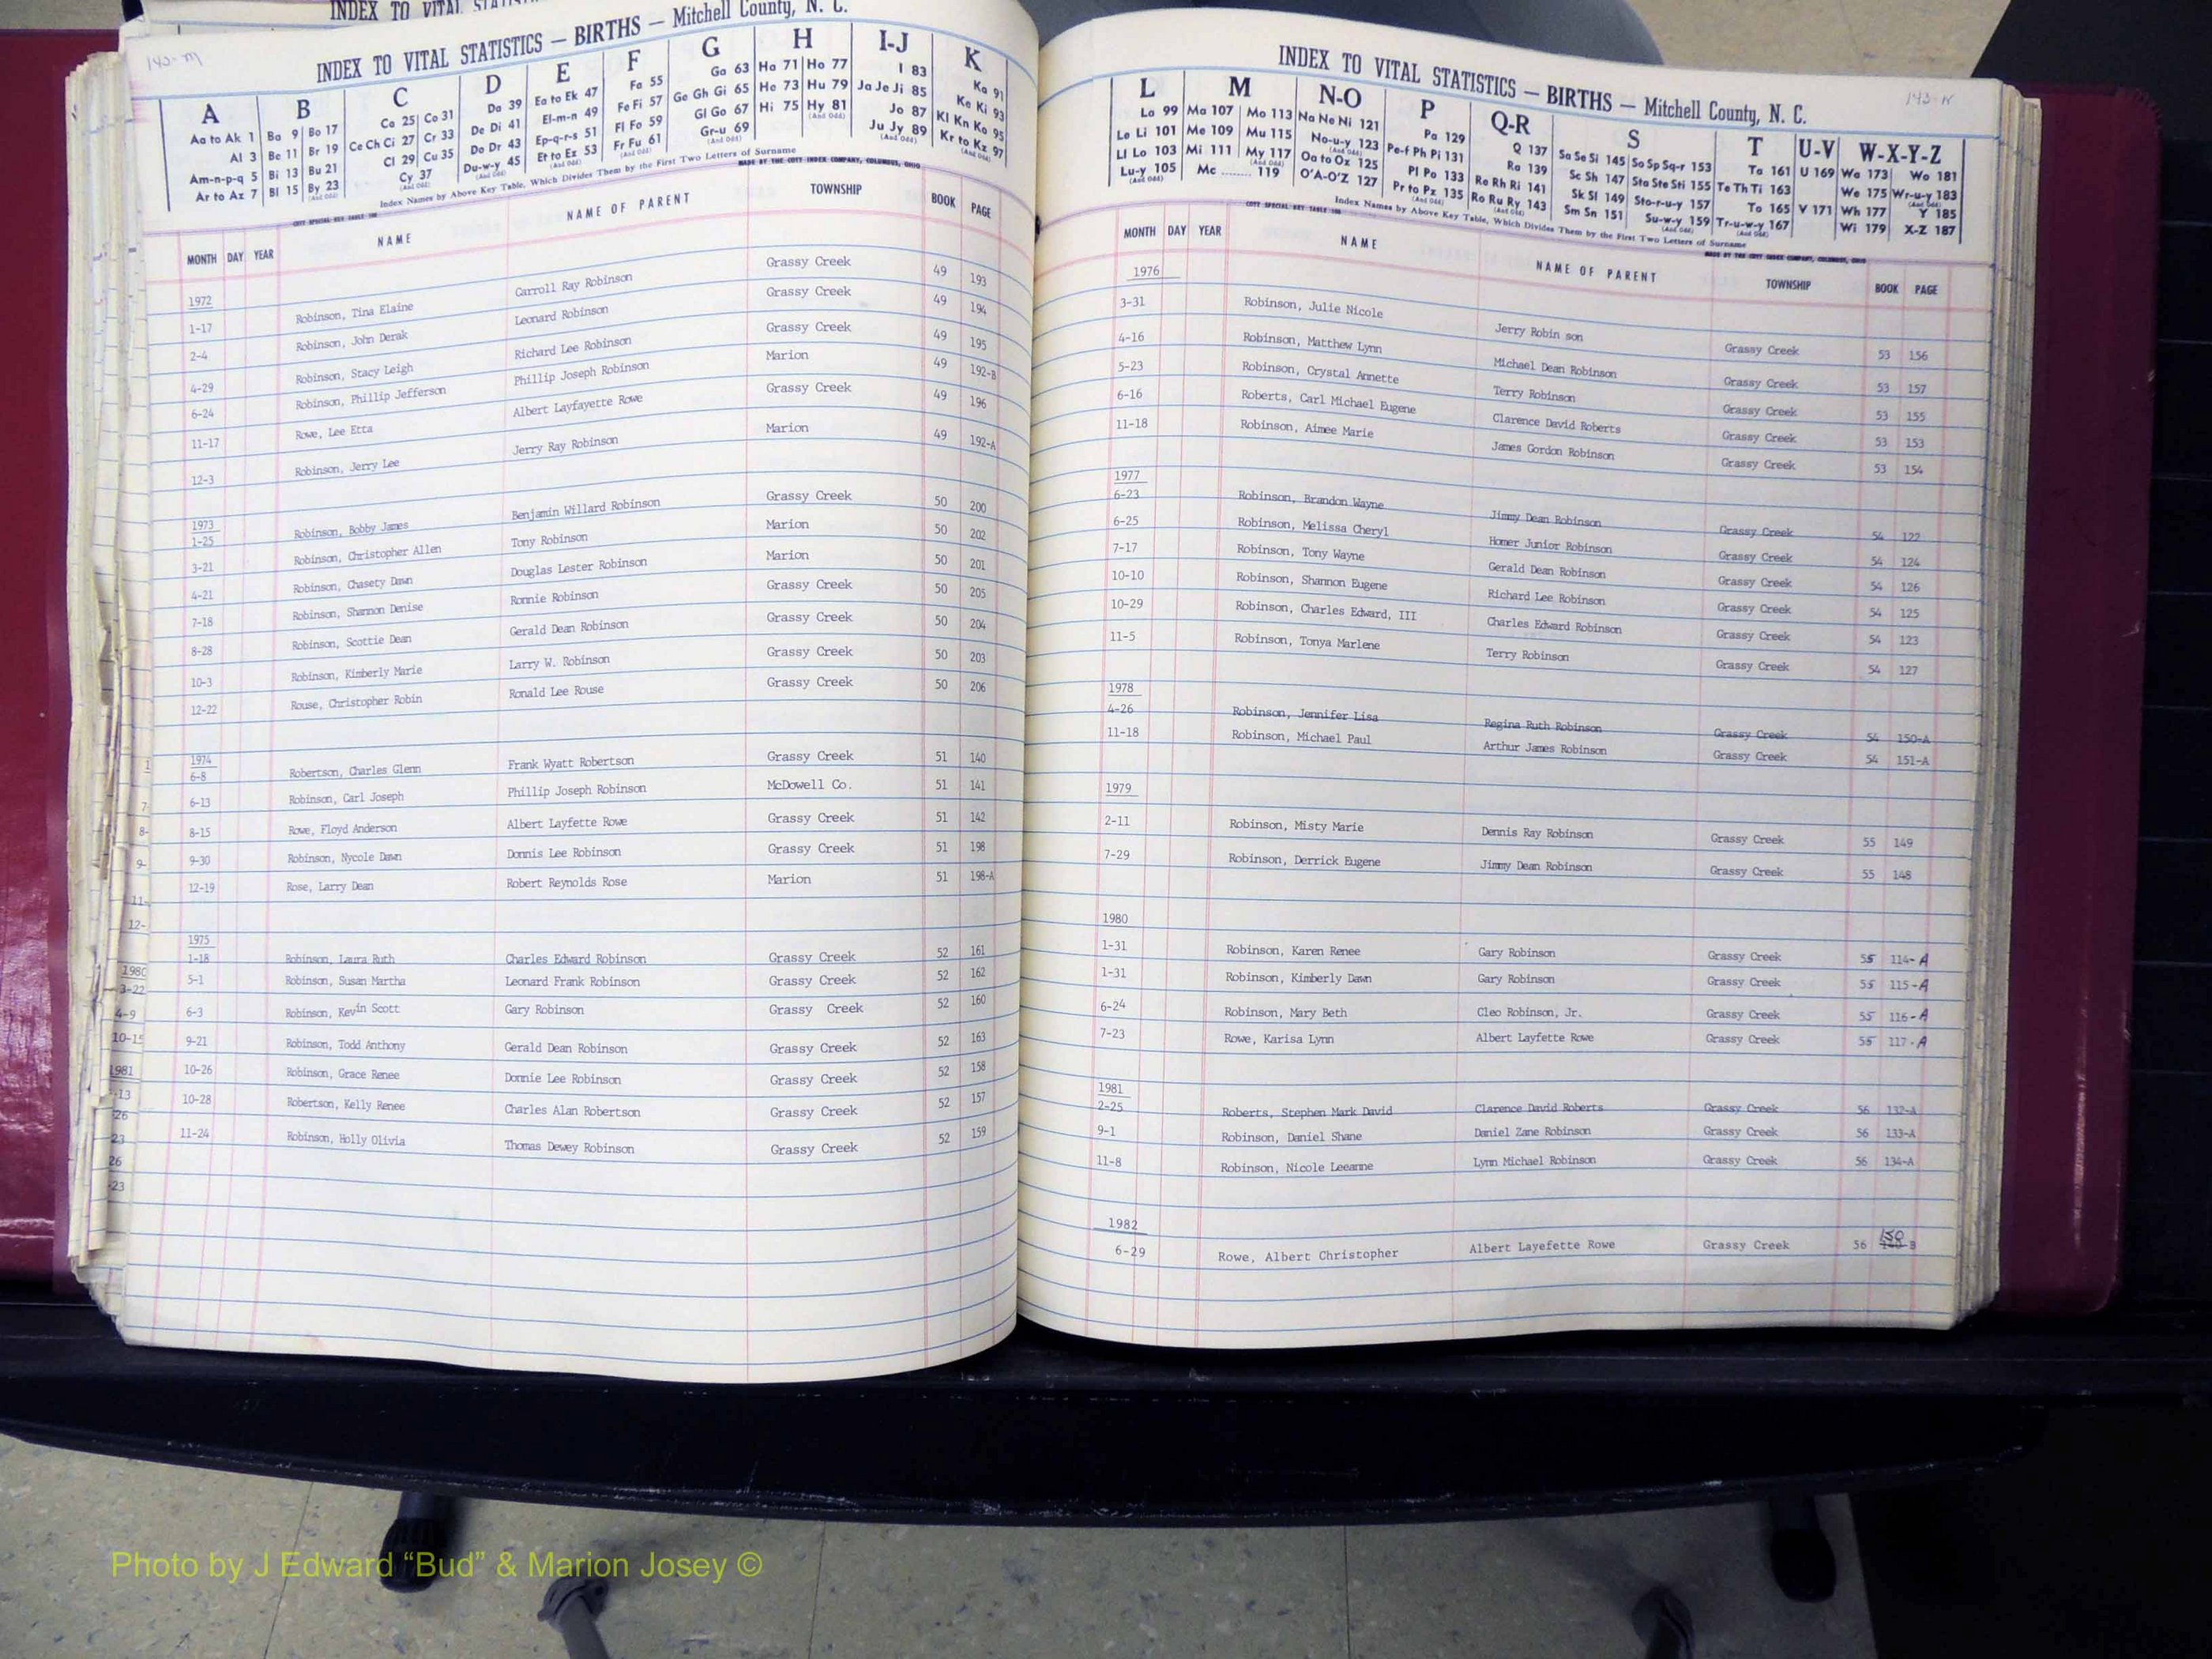 INDEX TO VITAL STATIS
143-M
INDEX TO VITAL STATISTICS — BIRTHS — Mitchell County, N. C.
A B C D E F G H I-J K
Aa to Ak 1 Ba 9 Bo 17 Ca 25 Co 31 Da 39 Ea to Ek 47 Fa 55 Ga 63 Ha 71 Ho 77 I 83 Ka 91
Al 3 Be 11 Br 19 Ce Ch Ci 27 Cr 33 De Di 41 El-m-n 49 Fe Fi 57 Ge Gh Gi 65 He 73 Hu 79 Ja Je Ji 85 Ke Ki 93
Am-n-p-q 5 Bi 13 Bu 21 Cl 29 Cu 35 Do Dr 43 Ep-q-r-s 51 Fl Fo 59 Gl Go 67 Hi 75 Hy 81 Jo 87 Kl Kn Ko 95
Ar to Az 7 Bl 15 By 23 Cy 37 Du-w-y 45 Et to Ez 53 Fr Fu 61 Gr-u 69 Ju Jy 89 Kr to Kz 97
Index Names by Above Key Table, Which Divides Them by the First Two Letters of Surname
MADE BY THE COTT INDEX COMPANY, COLUMBUS, OHIO
MONTH DAY YEAR NAME NAME OF PARENT TOWNSHIP BOOK PAGE
1972
1-17 Robinson, Tina Elaine Garroll Ray Robinson Grassy Creek 49 193
2-4 Robinson, John Derak Leonard Robinson Grassy Creek 49 194
4-29 Robinson, Stacy Leigh Richard Lee Robinson Grassy Creek 49 195
6-24 Robinson, Phillip Jefferson Phillip Joseph Robinson Marion 49 192-B
11-17 Rowe, Lee Etta Albert Layfayette Rowe Grassy Creek 49 196
12-3 Robinson, Jerry Lee Jerry Ray Robinson Marion 49 192-A
1973
1-25 Robinson, Bobby James Benjamin Willard Robinson Grassy Creek 50 200
3-21 Robinson, Christopher Allen Tony Robinson Marion 50 202
4-21 Robinson, Chasety Dawn Douglas Lester Robinson Marion 50 201
7-18 Robinson, Shannon Denise Ronnie Robinson Grassy Creek 50 205
8-28 Robinson, Scottie Dean Gerald Dean Robinson Grassy Creek 50 204
10-3 Robinson, Kimberly Marie Larry W. Robinson Grassy Creek 50 203
12-22 Rouse, Christopher Robin Ronald Lee Rouse Grassy Creek 50 206
1974
6-8 Robertson, Charles Glenn Frank Wyatt Robertson Grassy Creek 51 140
6-13 Robinson, Carl Joseph Phillip Joseph Robinson McDowell Co. 51 141
8-15 Rowe, Floyd Anderson Albert Layfette Rowe Grassy Creek 51 142
9-30 Robinson, Nycole Dawn Donnis Lee Robinson Grassy Creek 51 198
12-19 Rose, Larry Dean Robert Reynolds Rose Marion 51 198-A
1975
1-18 Robinson, Laura Ruth Charles Edward Robinson Grassy Creek 52 161
5-1 Robinson, Susan Martha Leonard Frank Robinson Grassy Creek 52 162
6-3 Robinson, Kevin Scott Gary Robinson Grassy Creek 52 160
9-21 Robinson, Todd Anthony Gerald Dean Robinson Grassy Creek 52 163
10-26 Robinson, Grace Renee Donnie Lee Robinson Grassy Creek 52 158
10-28 Robertson, Kelly Renee Charles Alan Robertson Grassy Creek 52 157
11-24 Robinson, Holly Olivia Thomas Dewey Robinson Grassy Creek 52 159
1
7
8-
9-
11-
12-
1980
3-22
4-9
10-15
1981
-13
26
23
26
-23
143-N
INDEX TO VITAL STATISTICS — BIRTHS — Mitchell County, N. C.
L M N-O P Q-R S T U-V W-X-Y-Z
La 99 Ma 107 Mo 113 Na Ne Ni 121 Pa 129 Q 137 Sa Se Si 145 So Sp Sq-r 153 Ta 161 U 169 Wa 173 Wo 181
Le Li 101 Me 109 Mu 115 No-u-y 123 Pe-f Ph Pi 131 Ra 139 Sc Sh 147 Sta Ste Sti 155 Te Th Ti 163 We 175 Wr-u-y 183
Ll Lo 103 Mi 111 My 117 Oa to Oz 125 Pl Po 133 Re Rh Ri 141 Sk Sl 149 Sto-r-u-y 157 To 165 V 171 Wh 177 Y 185
Lu-y 105 Mc 119 O'A-O'Z 127 Pr to Pz 135 Ro Ru Ry 143 Sm Sn 151 Su-w-y 159 Tr-u-w-y 167 Wi 179 X-Z 187
Index Names by Above Key Table, Which Divides Them by the First Two Letters of Surname
MADE BY THE COTT INDEX COMPANY, COLUMBUS, OHIO
MONTH DAY YEAR NAME NAME OF PARENT TOWNSHIP BOOK PAGE
1976
3-31 Robinson, Julie Nicole Jerry Robin son Grassy Creek 53 156
4-16 Robinson, Matthew Lynn Michael Dean Robinson Grassy Creek 53 157
5-23 Robinson, Crystal Annette Terry Robinson Grassy Creek 53 155
6-16 Roberts, Carl Michael Eugene Clarence David Roberts Grassy Creek 53 153
11-18 Robinson, Aimee Marie James Gordon Robinson Grassy Creek 53 154
1977
6-23 Robinson, Brandon Wayne Jimmy Dean Robinson Grassy Creek 54 122
6-25 Robinson, Melissa Cheryl Homer Junior Robinson Grassy Creek 54 124
7-17 Robinson, Tony Wayne Gerald Dean Robinson Grassy Creek 54 126
10-10 Robinson, Shannon Eugene Richard Lee Robinson Grassy Creek 54 125
10-29 Robinson, Charles Edward, III Charles Edward Robinson Grassy Creek 54 123
11-5 Robinson, Tonya Marlene Terry Robinson Grassy Creek 54 127
1978
4-26 Robinson, Jennifer Lisa Regina Ruth Robinson Grassy Creek 54 150-A
11-18 Robinson, Michael Paul Arthur James Robinson Grassy Creek 54 151-A
1979
2-11 Robinson, Misty Marie Dennis Ray Robinson Grassy Creek 55 149
7-29 Robinson, Derrick Eugene Jimmy Dean Robinson Grassy Creek 55 148
1980
1-31 Robinson, Karen Renee Gary Robinson Grassy Creek 55 114-A
1-31 Robinson, Kimberly Dawn Gary Robinson Grassy Creek 55 115-A
6-24 Robinson, Mary Beth Cleo Robinson, Jr. Grassy Creek 55 116-A
7-23 Rowe, Karisa Lynn Albert Layfette Rowe Grassy Creek 55 117-A
1981
2-25 Roberts, Stephen Mark David Clarence David Roberts Grassy Creek 56 132-A
9-1 Robinson, Daniel Shane Daniel Zane Robinson Grassy Creek 56 133-A
11-8 Robinson, Nicole Leeanne Lynn Michael Robinson Grassy Creek 56 134-A
1982
6-29 Rowe, Albert Christopher Albert Layefette Rowe Grassy Creek 56 150 B
Photo by J Edward “Bud” & Marion Josey ©